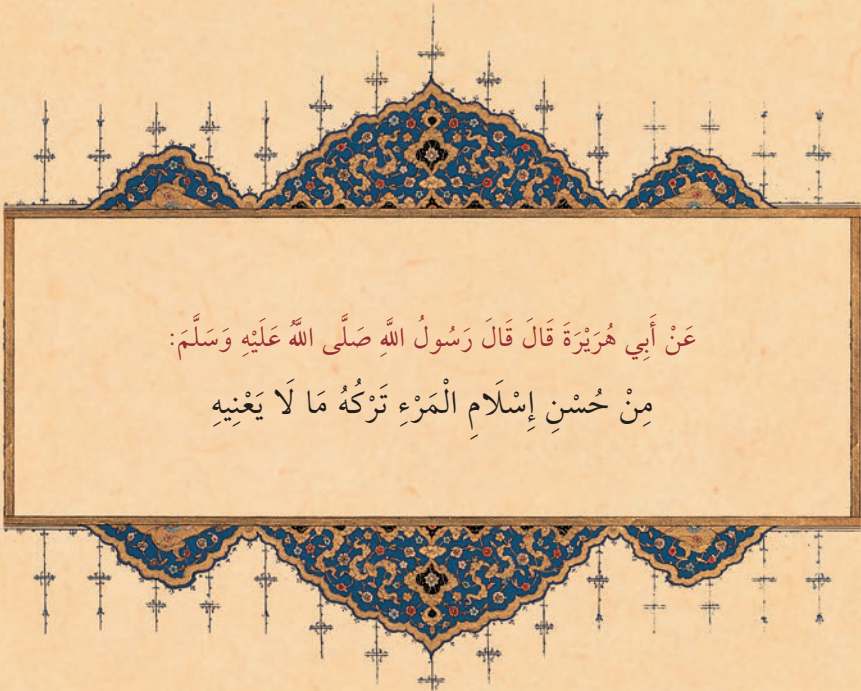 عَنْ أَبِي هُرَيْرَةَ قَالَ قَالَ رَسُولُ اللَّهِ صَلَّى اللَّهُ عَلَيْهِ وَسَلَّمَ:
مِنْ حُسْنِ إِسْلَامِ الْمَرْءِ تَرْكُهُ مَا لَا يَعْنِيهِ